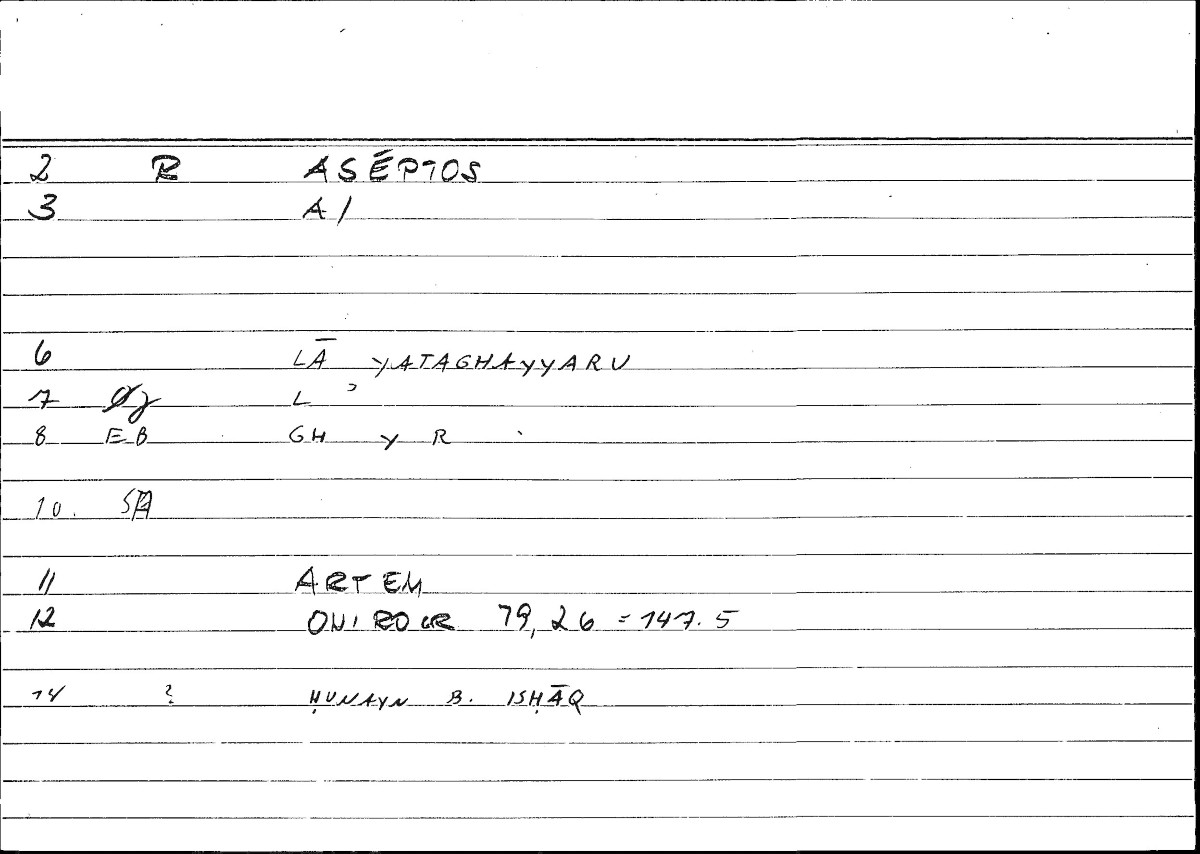 2 R ASĒPTOS
3 A/
6 LĀ YATAGHAYYARU
7 L ʾ
8 EB GH Y R
10.
11 ARTEM
12 ONIROCR 79,26 = 147.5
14 ? ḤUNAYN B. ISḤĀQ